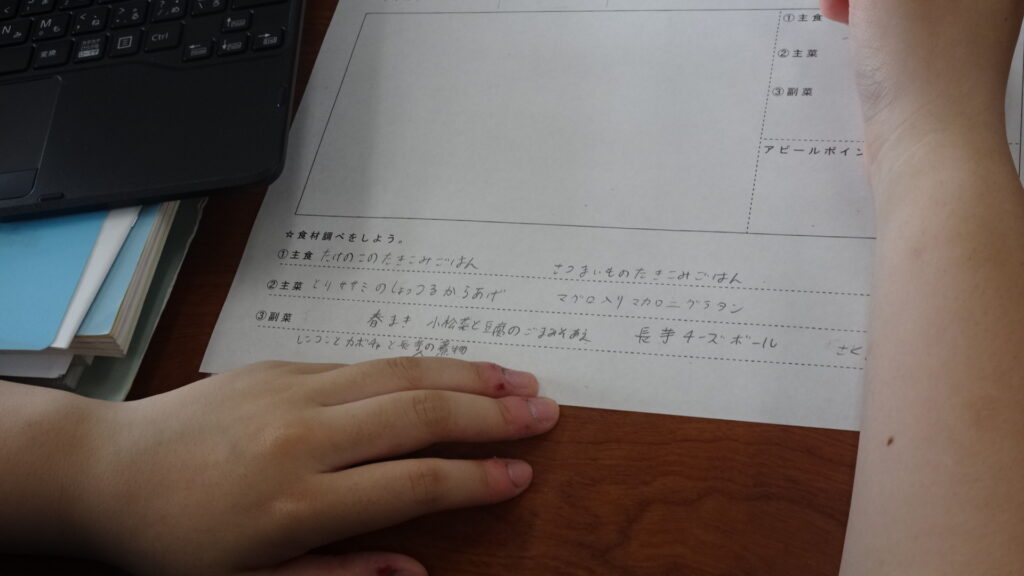 ①主食
②主菜
③副菜
アピールポイン
☆食材調べをしよう。
①主食 たけのこのたきこみごはん さつまいものたきこみごはん
②主菜 とりササミのしょっつるからあげ マグロ入りマカロニグラタン
③副菜 春まき 小松菜と豆腐のごまみそあえ 長芋チーズボール さと
レンコンとカボチャと長芋の煮物
変換
Ctrl